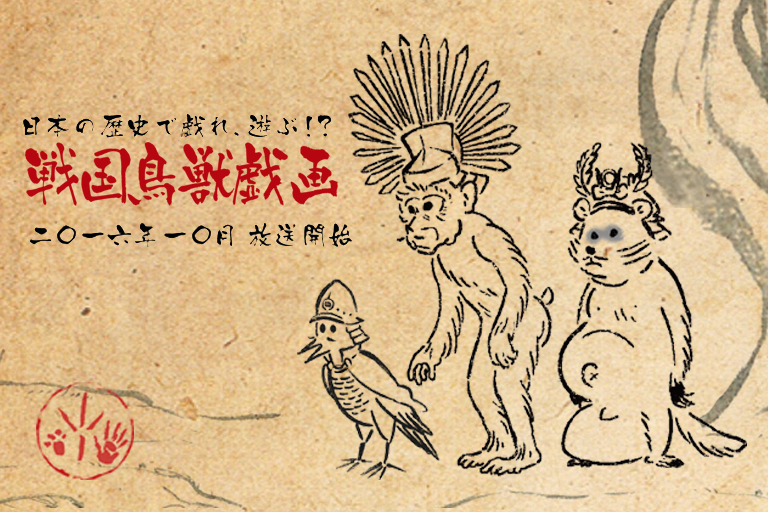 日本の歴史で戯れ、遊ぶ!?
戦国鳥獣戯画
二〇一六年一〇月 放送開始